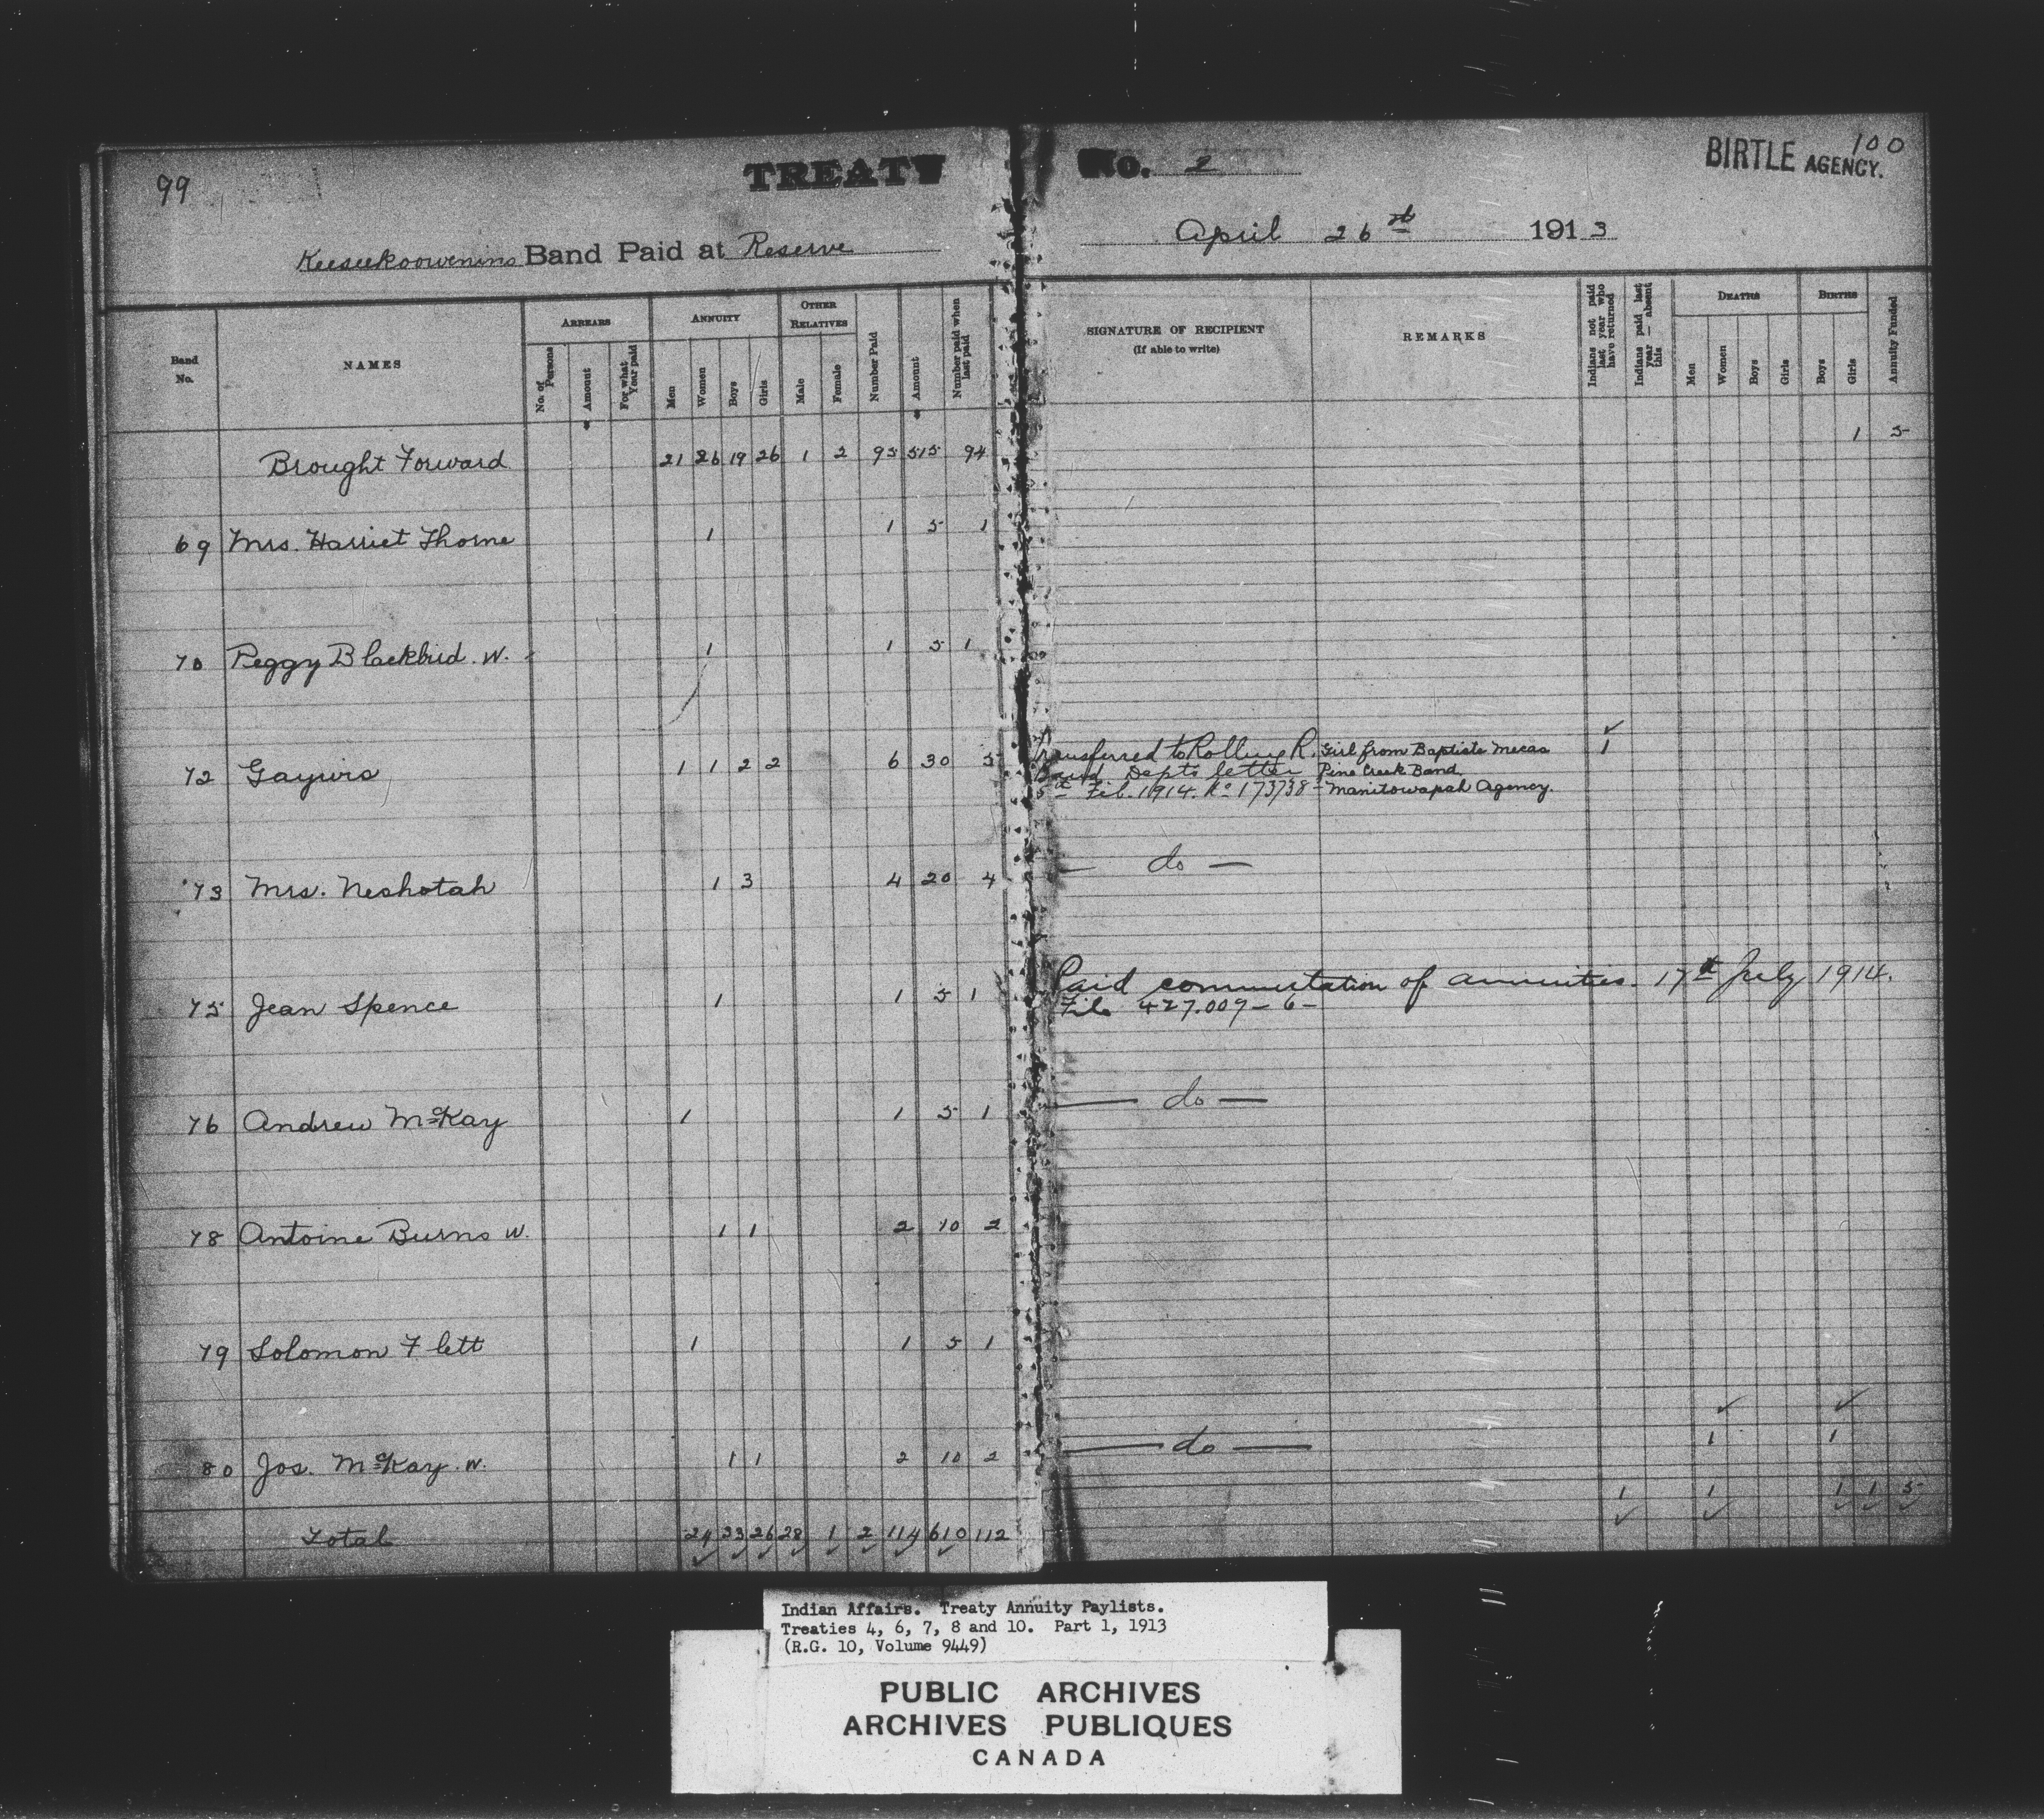 99
TREATY No. 2
BIRTLE AGENCY.
100
Keeseekoowenins Band Paid at Reserve
April 26th 1913
Band No.
NAMES
ARREARS
No. of Persons
Amount
For what Year paid
ANNUITY
Men
Women
Boys
Girls
OTHER RELATIVES
Male
Female
Number Paid
Amount
Number paid when last paid
SIGNATURE OF RECIPIENT
(If able to write)
REMARKS
Indians not paid last year who have returned
Indians paid last year — absent this
DEATHS
Men
Women
Boys
Girls
BIRTHS
Boys
Girls
Annuity Funded
Brought Forward 21 26 19 26 1 2 95 515 94 1 5
69 Mrs. Harriet Thorne 1 1 5 1
70 Peggy Blackbird. W. 1 1 5 1
72 Gaywis 1 1 2 2 6 30 5 1
Transferred to Rolling R.
Band Depts letter
5th Feb. 1914. No 173738-
Girl from Baptiste Mecas
Pine Creek Band.
Manitowapah Agency.
73 Mrs. Neshotah 1 3 4 20 4 — do —
75 Jean Spence 1 1 5 1
Paid commutation of annuities. 17th July 1914.
File 427.009-6-
76 Andrew McKay 1 1 5 1 — do —
78 Antoine Burns W. 1 1 2 10 2
79 Solomon Flett 1 1 5 1
80 Jos. McKay. W. 1 1 2 10 2 — do — 1 1
Total 24 33 26 28 1 2 114 610 112 1 1 1 1 5
Indian Affairs. Treaty Annuity Paylists.
Treaties 4, 6, 7, 8 and 10. Part 1, 1913
(R.G. 10, Volume 9449)
PUBLIC ARCHIVES
ARCHIVES PUBLIQUES
CANADA